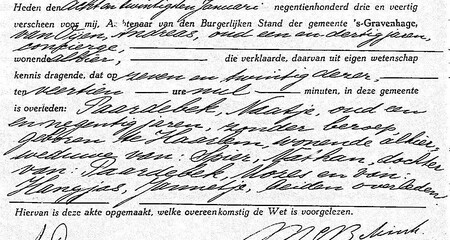 Heden den acht en twintigsten Januari negentienhonderd drie en veertig
verscheen voor mij, Ambtenaar van den Burgerlijken Stand der gemeente 's-Gravenhage,
van Oijen, Andreas, oud een en dertig jaren,
concierge,
wonende alhier, die verklaarde, daarvan uit eigen wetenschap
kennis dragende, dat op zeven en twintig dezer,
te veertien ure nul minuten, in deze gemeente
is overleden: Paardebek, Naatje, oud een
en negentig jaren, zonder beroep,
geboren te Haarlem, wonende alhier,
weduwe van: Spier, Nathan, dochter
van: Paardebek, Mozes en van:
Hangjas, Jannetje, beiden overleden
Hiervan is deze akte opgemaakt, welke overeenkomstig de Wet is voorgelezen.